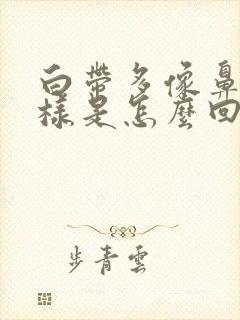 白带多像鼻
樣是怎麼回
步青雲